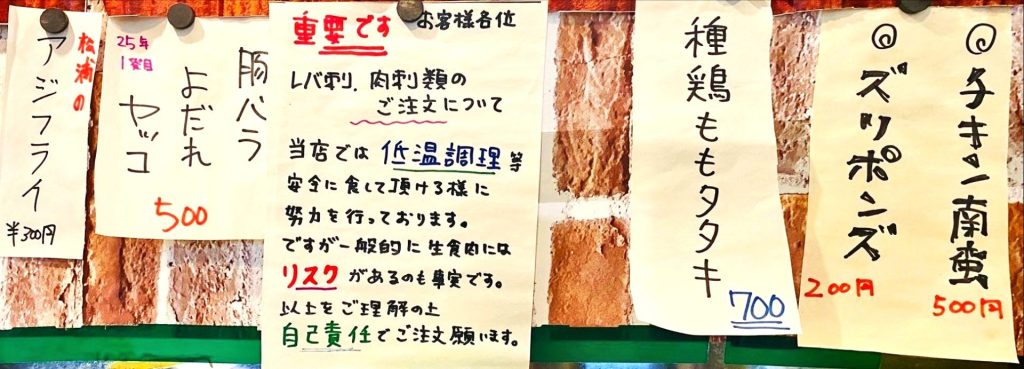 松浦の
アジフライ
¥300円
25年
1発目
豚バラ
よだれ
ヤッコ
500
重要です
お客様各位
レバ刺、肉刺類の
ご注文について
当店では 低温調理 等
安全に食して頂ける様に
努力を行っております。
ですが一般的に生食肉には
リスクがあるのも事実です。
以上をご理解の上
自己責任でご注文願います。
種鶏ももタタキ
700
◎チキン南蛮
500円
◎ズリポンズ
200円